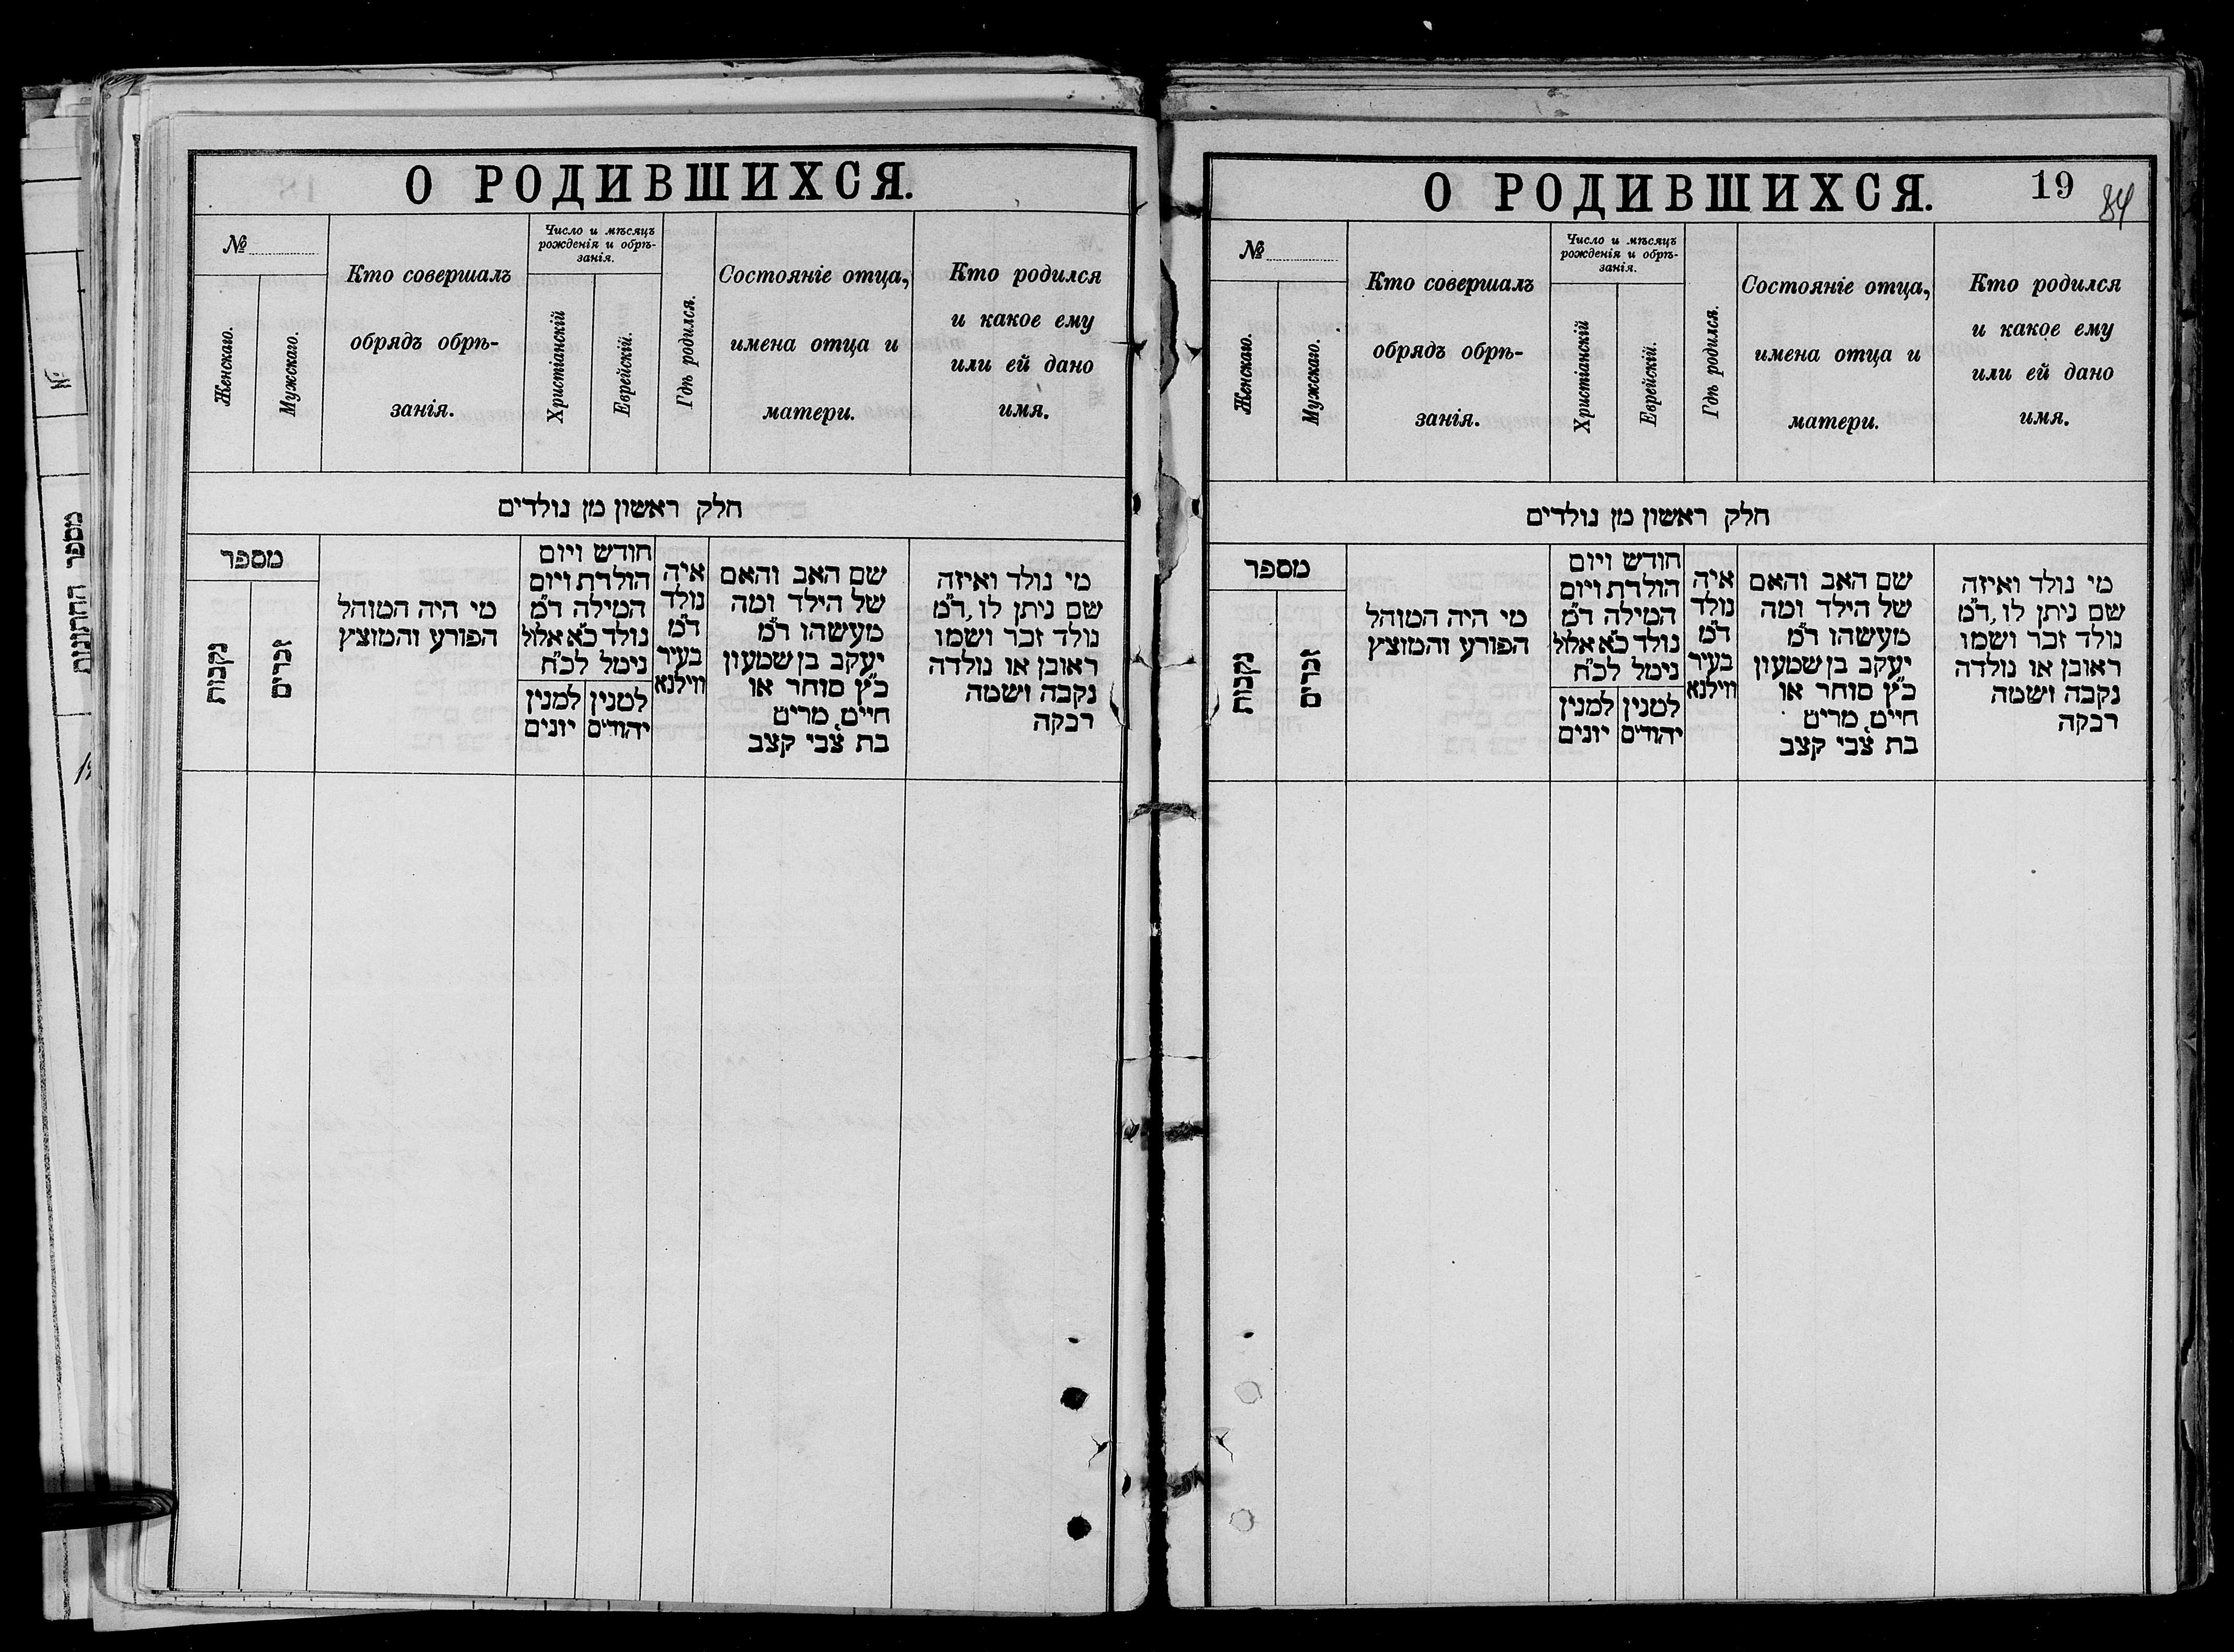 О РОДИВШИХСЯ.
№
Женскаго.
Мужскаго.
Кто совершалъ
обрядъ обрѣ-
занія.
Число и мѣсяцъ
рожденія и обрѣ-
занія.
Христіанскій
Еврейскій.
Гдѣ родился.
Состояніе отца,
имена отца и
матери.
Кто родился
и какое ему
или ей дано
имя.
חלק ראשון מן נולדים
מספר
נקבות
זכרים
מי היה המוהל
הפורע והמוצץ
חודש ויום
הולדת ויום
המילה ד"מ
נולד כ"א אלול
נימל לכ"ח
למנין
יונים
למנין
יהודים
איה
נולד
ד"מ
בעיר
ווילנא
שם האב והאם
של הילד ומה
מעשהו ד"מ
יעקב בן שמעון
כ"ץ סוחר או
חיים, מרים
בת צבי קצב
מי נולד ואיזה
שם ניתן לו, ד"מ
נולד זכר ושמו
ראובן או נולדה
נקבה ושמה
רבקה
О РОДИВШИХСЯ.
19
84
№
Женскаго.
Мужскаго.
Кто совершалъ
обрядъ обрѣ-
занія.
Число и мѣсяцъ
рожденія и обрѣ-
занія.
Христіанскій
Еврейскій.
Гдѣ родился.
Состояніе отца,
имена отца и
матери.
Кто родился
и какое ему
или ей дано
имя.
חלק ראשון מן נולדים
מספר
נקבות
זכרים
מי היה המוהל
הפורע והמוצץ
חודש ויום
הולדת ויום
המילה ד"מ
נולד כ"א אלול
נימל לכ"ח
למנין
יונים
למנין
יהודים
איה
נולד
ד"מ
בעיר
ווילנא
שם האב והאם
של הילד ומה
מעשהו ד"מ
יעקב בן שמעון
כ"ץ סוחר או
חיים, מרים
בת צבי קצב
מי נולד ואיזה
שם ניתן לו, ד"מ
נולד זכר ושמו
ראובן או נולדה
נקבה ושמה
רבקה
№
מספר החתונות